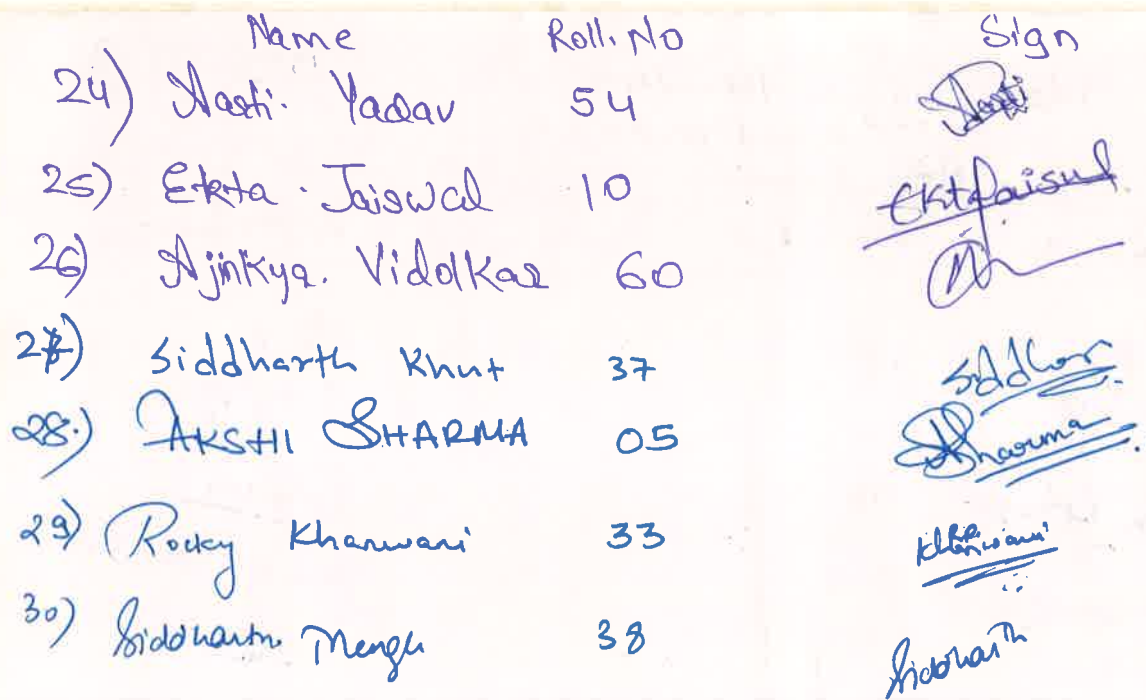 Name Roll. No Sign
24) Aarti. Yadav 54 Aarti
25) Ekta. Jaiswal 10 EktaJaiswal
26) Ajinkya. Vidolkar 60
27) Siddharth Khut 37 Siddhar
28.) AKSHI SHARMA 05 ASharma
29) Rocky Khanwani 33 Khanwani
30) Siddharth 38 Siddharth